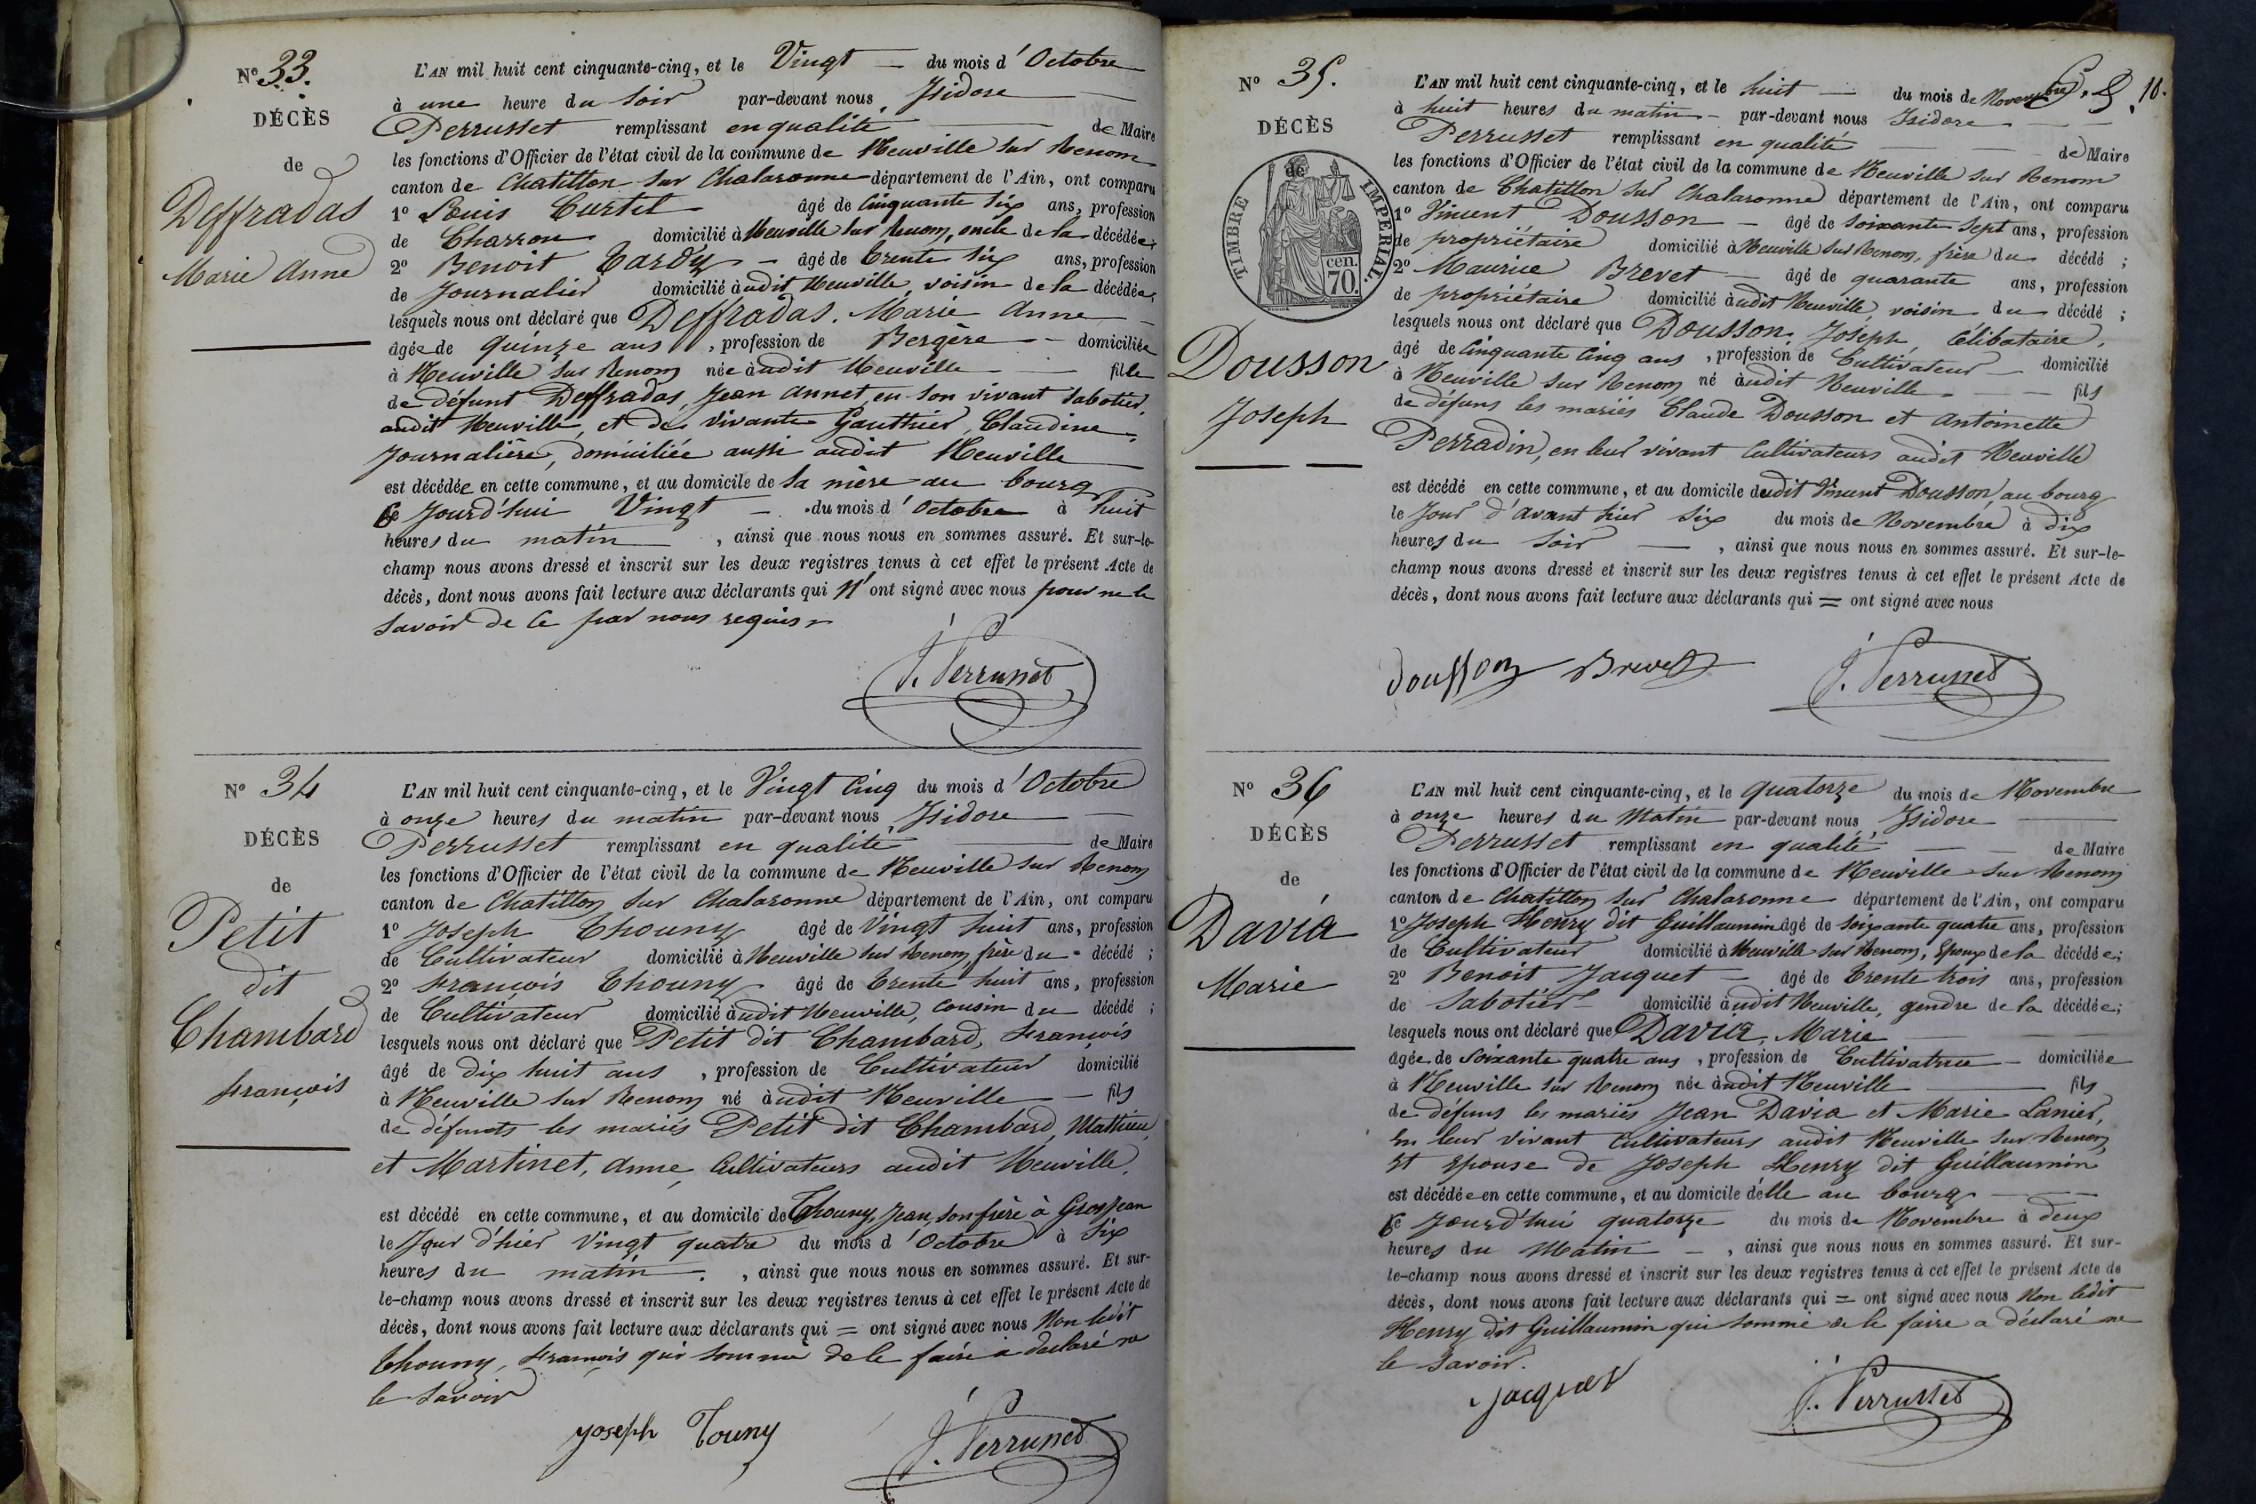 Nº 33.
DÉCÈS
de
Deffradas
Marie Anne
L'AN mil huit cent cinquante-cinq, et le Vingt — du mois d'Octobre
à une heure du soir par-devant nous, Isidore —
Perrusset remplissant en qualité — de Maire
les fonctions d'Officier de l'état civil de la commune de Neuville sur Renom
canton de Chatillon sur Chalaronne département de l'Ain, ont comparu
1º Louis Curtet âgé de Cinquante six ans, profession
de Charron domicilié à Neuville sur Renom, oncle de la décédée;
2º Benoit Tardy — âgé de trente six ans, profession
de Journalier domicilié audit Neuville, voisin de la décédée;
lesquels nous ont déclaré que Deffradas. Marie Anne —
âgée de quinze ans, profession de Bergère — domiciliée
à Neuville sur Renom née audit Neuville — fille
de défunt Deffradas, Jean Annet, en son vivant sabotier,
audit Neuville, et de vivante Gauthier, Claudine,
Journalière, domiciliée aussi audit Neuville
est décédée en cette commune, et au domicile de sa mère au bourg
Ce Jourd'hui Vingt — du mois d'Octobre à huit
heures du matin —, ainsi que nous nous en sommes assuré. Et sur-le-
champ nous avons dressé et inscrit sur les deux registres tenus à cet effet le présent Acte de
décès, dont nous avons fait lecture aux déclarants qui N'ont signé avec nous pour ne le
savoir de ce par nous requis
J. Perrusset
Nº 34
DÉCÈS
de
Petit
dit
Chambard
François
L'AN mil huit cent cinquante-cinq, et le Vingt Cinq du mois d'Octobre
à onze heures du matin par-devant nous, Isidore —
Perrusset remplissant en qualité — de Maire
les fonctions d'Officier de l'état civil de la commune de Neuville sur Renom
canton de Chatillon sur Chalaronne département de l'Ain, ont comparu
1º Joseph Thouny âgé de Vingt huit ans, profession
de Cultivateur domicilié à Neuville sur Renom, frère du décédé;
2º François Thouny âgé de trente huit ans, profession
de Cultivateur domicilié audit Neuville, cousin du décédé;
lesquels nous ont déclaré que Petit dit Chambard, François
âgé de dix huit ans, profession de Cultivateur domicilié
à Neuville sur Renom né audit Neuville — fils
de défunts les mariés Petit dit Chambard, Mathieu,
et Martinet, Anne, Cultivateurs audit Neuville,
est décédé en cette commune, et au domicile de Thouny, Jean, son frère à Grosjean
le Jour d'hier Vingt quatre du mois d'Octobre à Six
heures du matin —, ainsi que nous nous en sommes assuré. Et sur-
le-champ nous avons dressé et inscrit sur les deux registres tenus à cet effet le présent Acte de
décès, dont nous avons fait lecture aux déclarants qui = ont signé avec nous Non ledit
Thouny, François qui sommé de le faire a déclaré ne
le savoir
Joseph Touny
J. Perrusset
Nº 35.
DÉCÈS
de
TIMBRE IMPÉRIAL.
cen.
70.
Dousson
Joseph
10.
L'AN mil huit cent cinquante-cinq, et le huit — du mois de Novembre
à huit heures du matin — par-devant nous Isidore —
Perrusset remplissant en qualité — de Maire
les fonctions d'Officier de l'état civil de la commune de Neuville sur Renom
canton de Chatillon sur Chalaronne département de l'Ain, ont comparu
1º Vincent Dousson — âgé de soixante sept ans, profession
de propriétaire domicilié à Neuville sur Renom, frère du décédé;
2º Maurice Brevet — âgé de quarante ans, profession
de propriétaire domicilié audit Neuville, voisin du décédé;
lesquels nous ont déclaré que Dousson, Joseph, Célibataire,
âgé de Cinquante Cinq ans, profession de Cultivateur — domicilié
à Neuville sur Renom né audit Neuville — fils
de défuns les mariés Claude Dousson et Antoinette
Perradin, en leur vivant Cultivateurs audit Neuville
est décédé en cette commune, et au domicile dudit Vincent Dousson, au bourg
le Jour d'avant hier Six du mois de Novembre à dix
heures du Soir —, ainsi que nous nous en sommes assuré. Et sur-le-
champ nous avons dressé et inscrit sur les deux registres tenus à cet effet le présent Acte de
décès, dont nous avons fait lecture aux déclarants qui = ont signé avec nous
Dousson Brevet J. Perrusset
Nº 36
DÉCÈS
de
Davia
Marie
L'AN mil huit cent cinquante-cinq, et le Quatorze du mois de Novembre
à onze heures du Matin par-devant nous, Isidore —
Perrusset remplissant en qualité — de Maire
les fonctions d'Officier de l'état civil de la commune de Neuville sur Renom
canton de Chatillon sur Chalaronne département de l'Ain, ont comparu
1º Joseph Henry dit Guillaumin âgé de soixante quatre ans, profession
de Cultivateur domicilié à Neuville sur Renom, Epoux de la décédée;
2º Benoit Jacquet — âgé de trente trois ans, profession
de Sabotier domicilié audit Neuville, gendre de la décédée;
lesquels nous ont déclaré que Davia, Marie —
âgée de soixante quatre ans, profession de Cultivatrice — domiciliée
à Neuville sur Renom née audit Neuville — fils
de défuns les mariés Jean Davia et Marie Lanier,
en leur vivant Cultivateurs audit Neuville sur Renom,
et Epouse de Joseph Henry dit Guillaumin
est décédée en cette commune, et au domicile d'elle au bourg —
Ce Jourd'hui quatorze du mois de Novembre à deux
heures du Matin —, ainsi que nous nous en sommes assuré. Et sur-
le-champ nous avons dressé et inscrit sur les deux registres tenus à cet effet le présent Acte de
décès, dont nous avons fait lecture aux déclarants qui = ont signé avec nous Non ledit
Henry dit Guillaumin qui sommé de le faire a déclaré ne
le savoir.
Jacquet
J. Perrusset